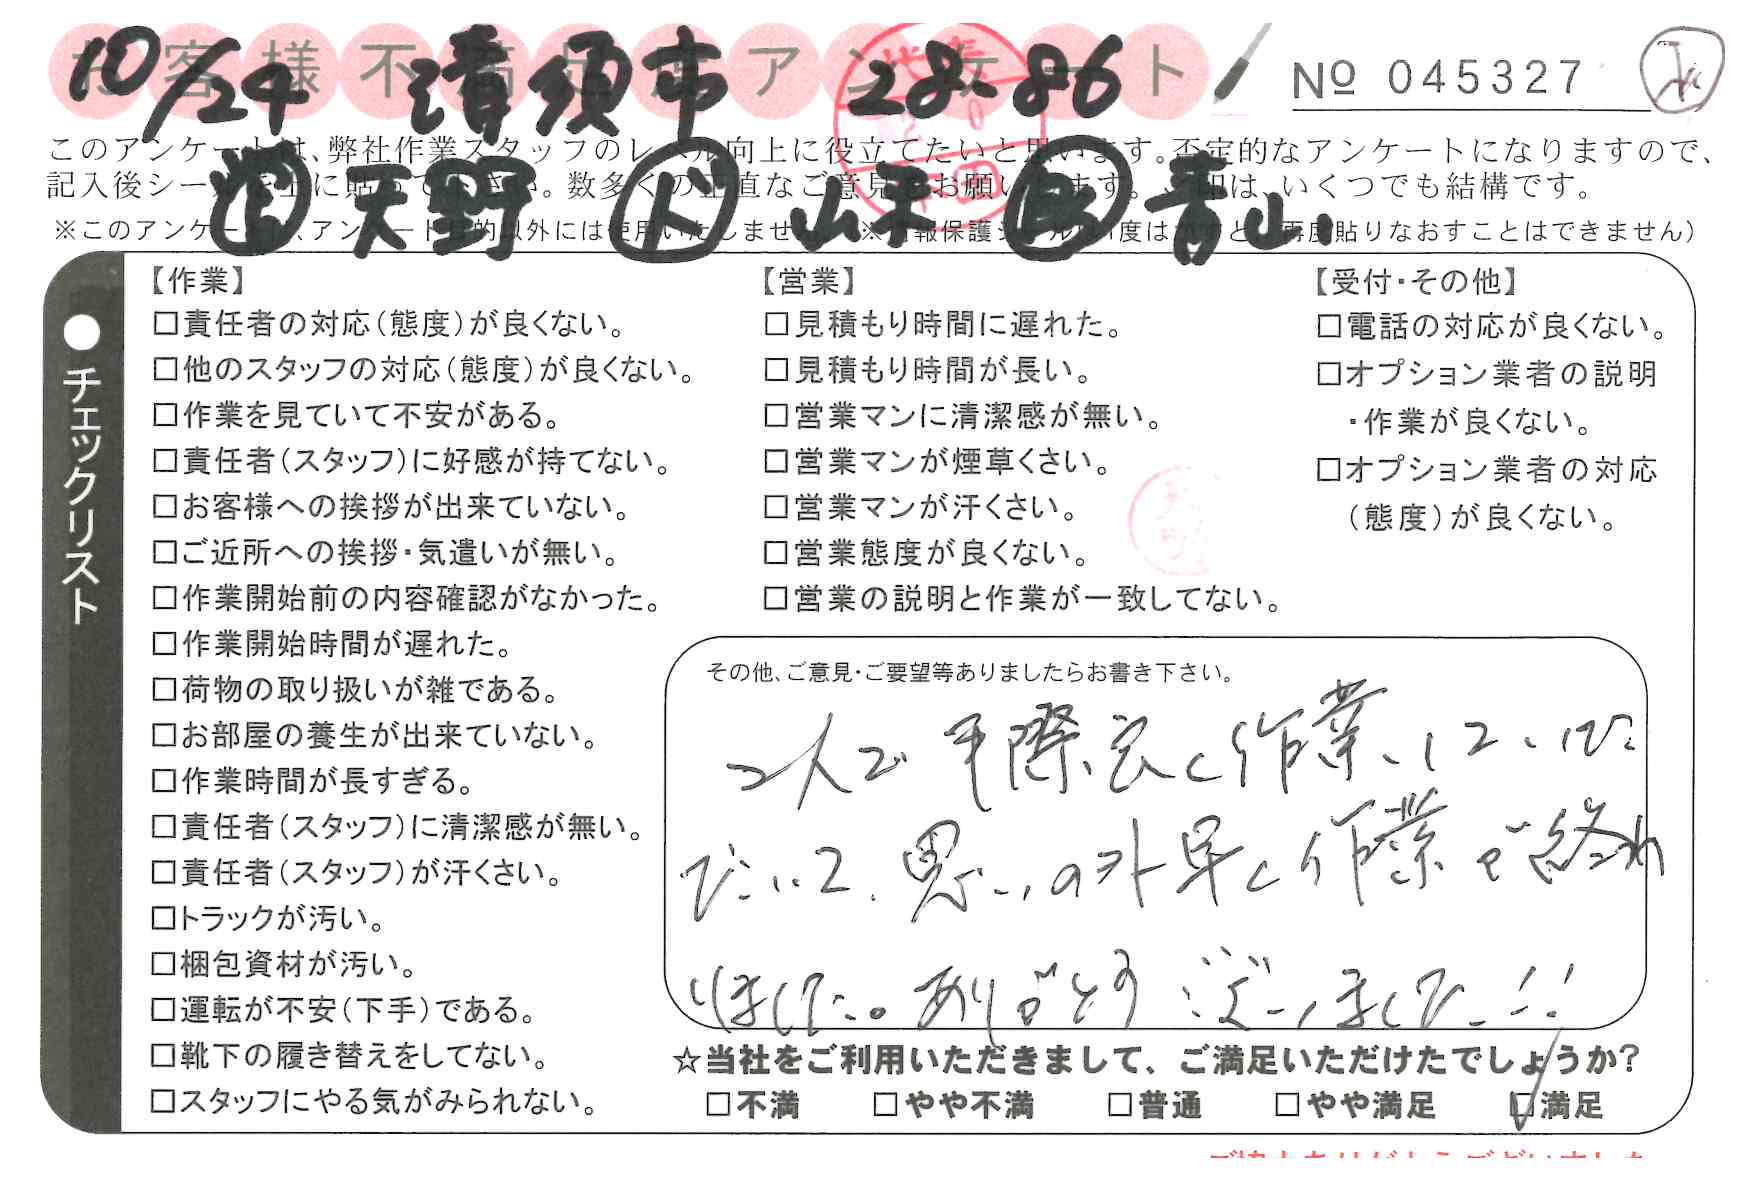 お客様不満足度アンケート
10/24 清須市 28-86
No 045327
このアンケートは、弊社作業スタッフのレベル向上に役立てたいと思います。否定的なアンケートになりますので、
記入後シールを上に貼って下さい。数多くの正直なご意見をお願いします。✓印は、いくつでも結構です。
天野 山本 青山
※このアンケートは、アンケート目的以外には使用いたしません。(※情報保護シールは1度はがすと、再度貼りなおすことはできません)
●チェックリスト
【作業】
□責任者の対応(態度)が良くない。
□他のスタッフの対応(態度)が良くない。
□作業を見ていて不安がある。
□責任者(スタッフ)に好感が持てない。
□お客様への挨拶が出来ていない。
□ご近所への挨拶・気遣いが無い。
□作業開始前の内容確認がなかった。
□作業開始時間が遅れた。
□荷物の取り扱いが雑である。
□お部屋の養生が出来ていない。
□作業時間が長すぎる。
□責任者(スタッフ)に清潔感が無い。
□責任者(スタッフ)が汗くさい。
□トラックが汚い。
□梱包資材が汚い。
□運転が不安(下手)である。
□靴下の履き替えをしてない。
□スタッフにやる気がみられない。
【営業】
□見積もり時間に遅れた。
□見積もり時間が長い。
□営業マンに清潔感が無い。
□営業マンが煙草くさい。
□営業マンが汗くさい。
□営業態度が良くない。
□営業の説明と作業が一致してない。
【受付・その他】
□電話の対応が良くない。
□オプション業者の説明
・作業が良くない。
□オプション業者の対応
(態度)が良くない。
その他、ご意見・ご要望等ありましたらお書き下さい。
2人で手際良く作業していた
だいて、思いの外早く作業が終わ
りました。ありがとうございました!!
☆当社をご利用いただきまして、ご満足いただけたでしょうか?
□不満 □やや不満 □普通 □やや満足 ☑満足
ご協力ありがとうございました